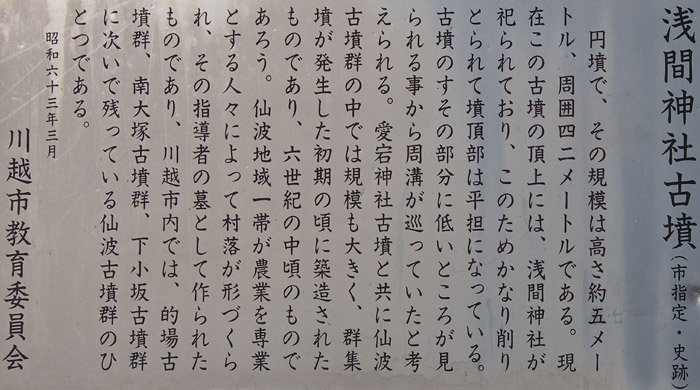 浅間神社古墳(市指定・史跡)
円墳で、その規模は高さ約五メー
トル、周囲四二メートルである。現
在この古墳の頂上には、浅間神社が
祀られており、このためかなり削り
とられて墳頂部は平担になっている。
古墳のすその部分に低いところが見
られる事から周溝が巡っていたと考
えられる。愛宕神社古墳と共に仙波
古墳群の中では規模も大きく、群集
墳が発生した初期の頃に築造された
ものであり、六世紀の中頃のもので
あろう。仙波地域一帯が農業を専業
とする人々によって村落が形づくら
れ、その指導者の墓として作られた
ものであり、川越市内では、的場古
墳群、南大塚古墳群、下小坂古墳群
に次いで残っている仙波古墳群のひ
とつである。
昭和六十三年三月
川越市教育委員会